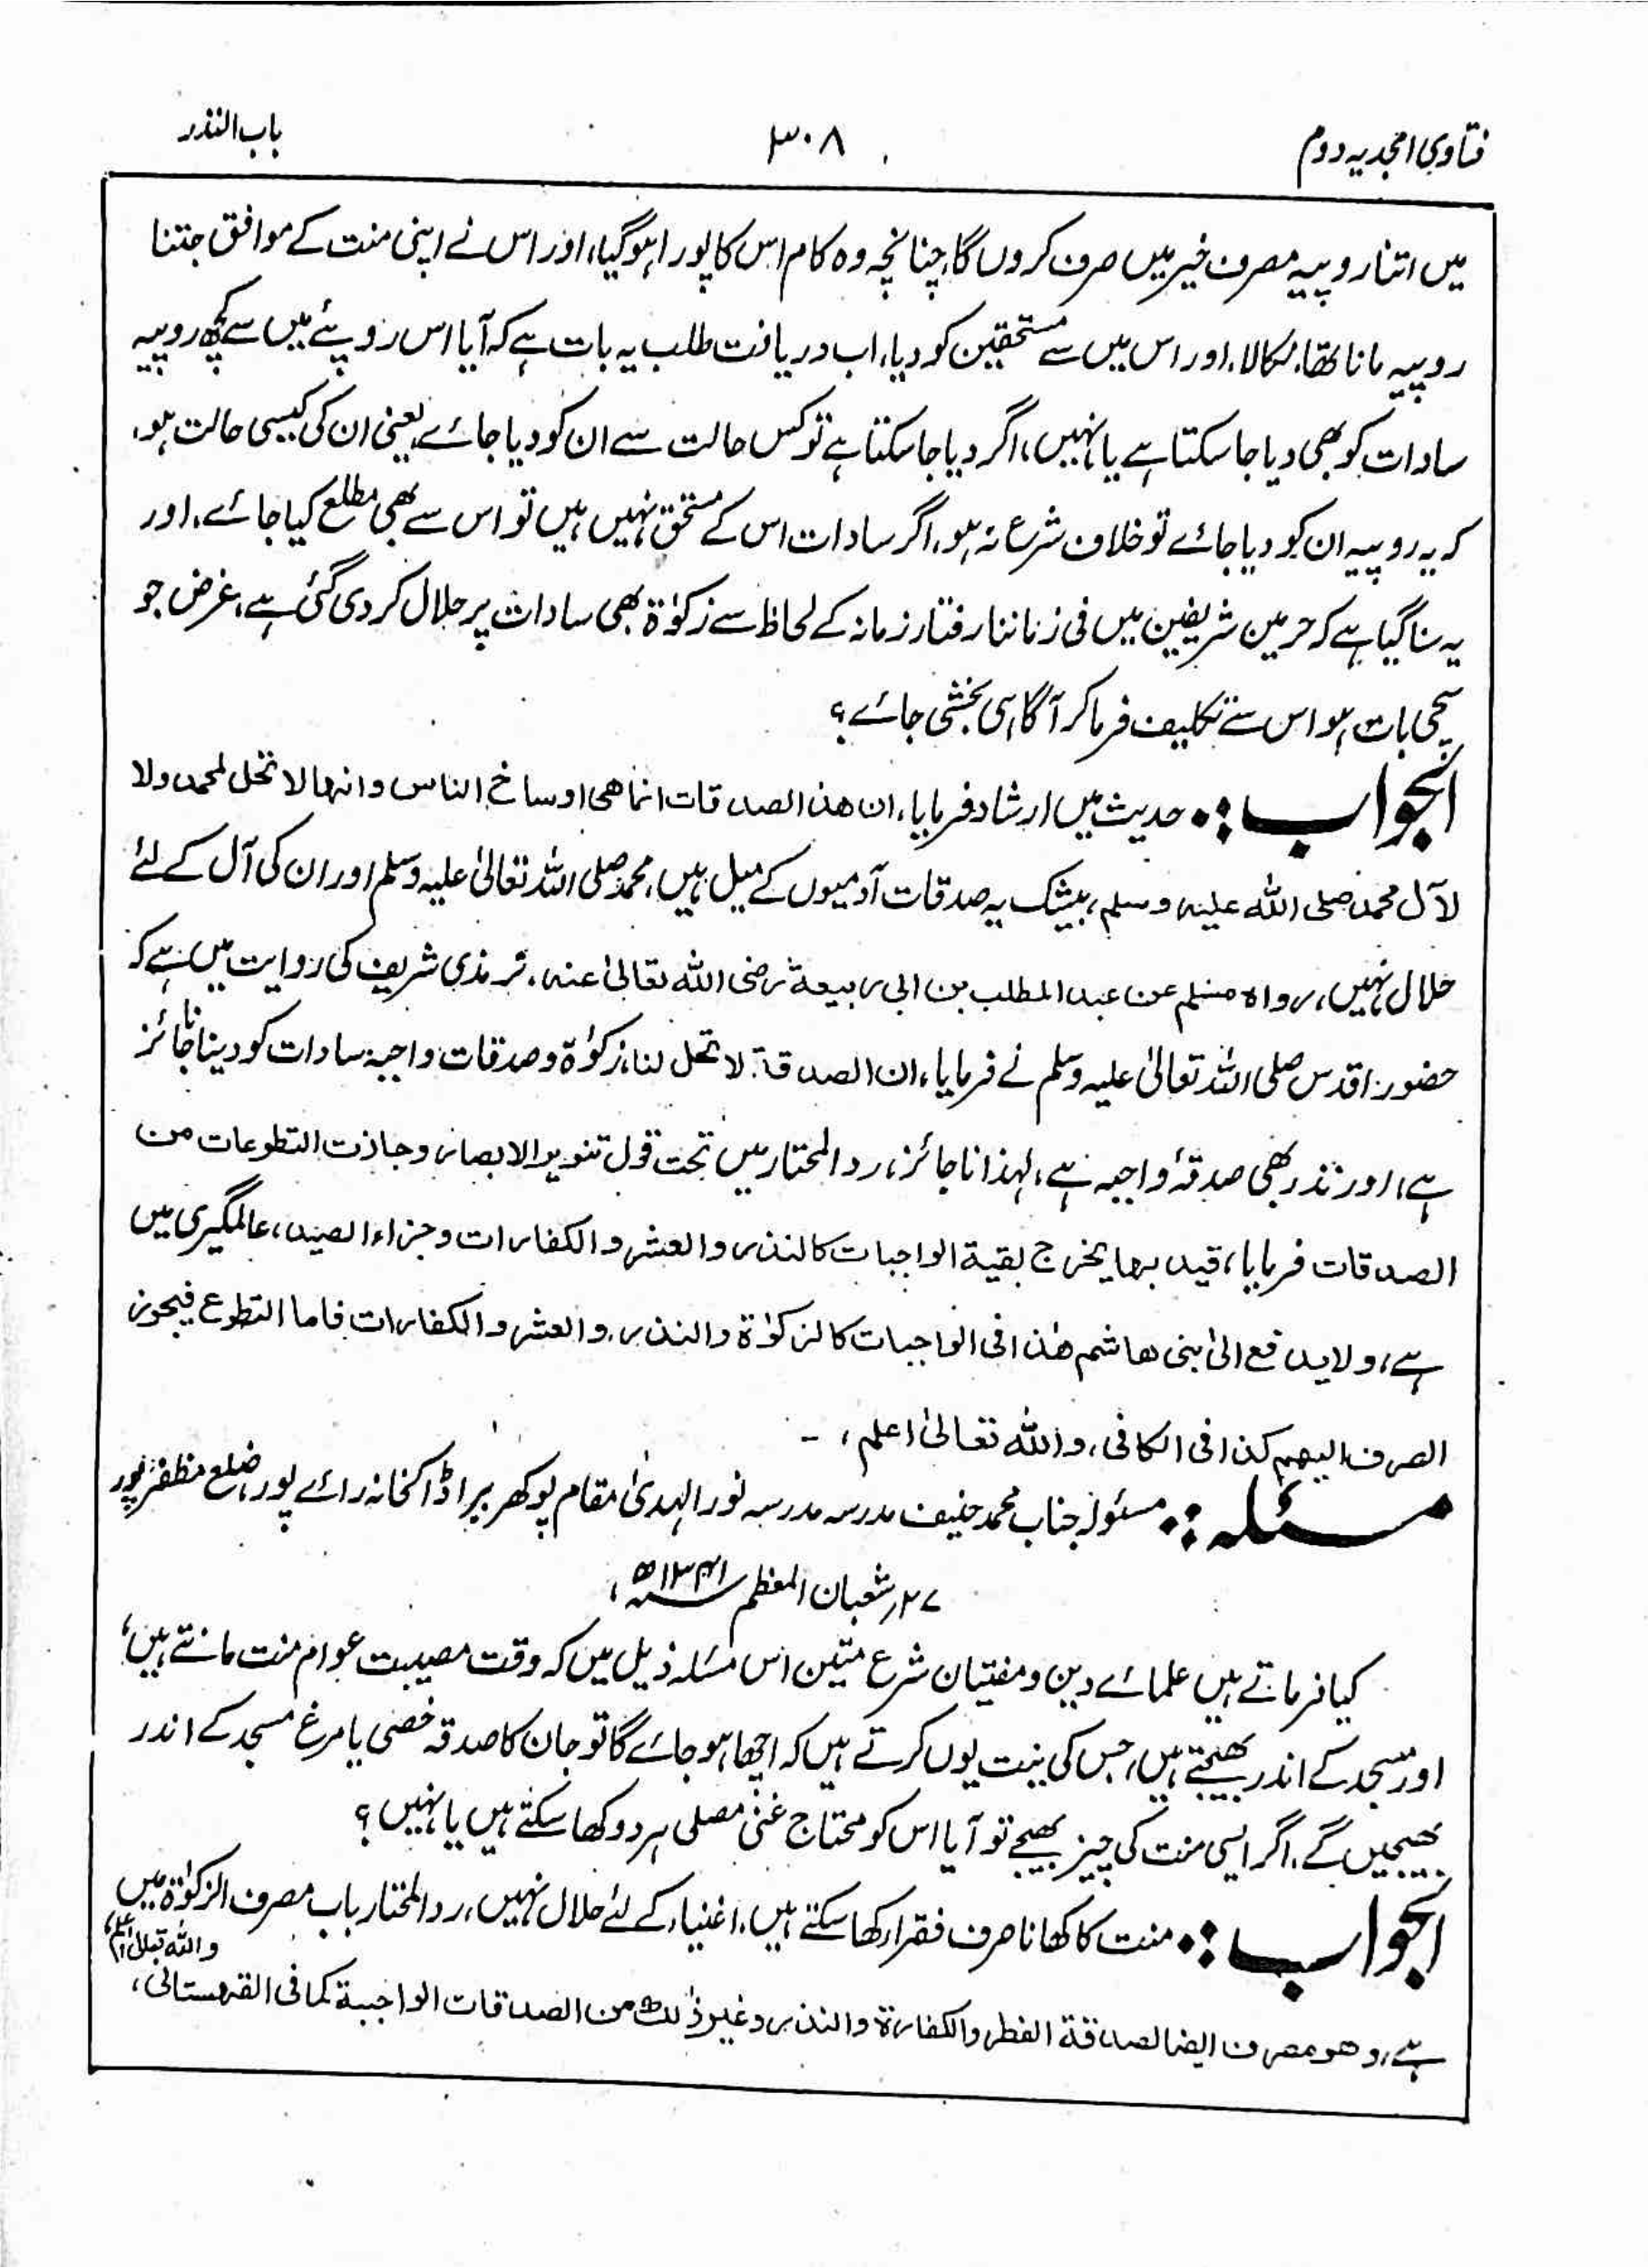 فتاوی امجدیہ دوم
۳۰۸
باب النذر
میں اتنا روپیہ مصرف خیر میں صرف کروں گا، چنانچہ وہ کام اس کا پورا ہوگیا، اور اس نے اپنی منت کے موافق جتنا
روپیہ مانا تھا، نکالا، اور اس میں سے مستحقین کو دیا، اب دریافت طلب یہ بات ہے کہ آیا اس روپئے میں سے کچھ روپیہ
سادات کو بھی دیا جا سکتا ہے یا نہیں، اگر دیا جا سکتا ہے تو کس حالت سے ان کو دیا جائے یعنی ان کی کیسی حالت ہو،
کہ یہ روپیہ ان کو دیا جائے تو خلاف شرع نہ ہو، اگر سادات اس کے مستحق نہیں ہیں تو اس سے بھی مطلع کیا جائے، اور
یہ سنا گیا ہے کہ حرمین شریفین میں فی زماننا رفتار زمانہ کے لحاظ سے زکوٰۃ بھی سادات پر حلال کر دی گئی ہے، غرض جو
سچی بات ہو اس سے تکلیف فرما کر آگاہی بخشی جائے؟
الجواب :. حدیث میں ارشاد فرمایا، ان هذه الصدقات انما هی اوساخ الناس وانها لا تحل لمحمد ولا
لآل محمد صلی اللہ علیہ وسلم، بیشک یہ صدقات آدمیوں کے میل ہیں، محمد صلی اللہ تعالیٰ علیہ وسلم اور ان کی آل کے لئے
حلال نہیں، رواہ مسلم عن عبد المطلب بن ابی ربیعۃ رضی اللہ تعالیٰ عنہ، ترمذی شریف کی روایت میں ہے کہ
حضور اقدس صلی اللہ تعالیٰ علیہ وسلم نے فرمایا، ان الصدقۃ لا تحل لنا، زکوٰۃ و صدقات واجبہ سادات کو دینا ناجائز
ہے، اور نذر بھی صدقۂ واجبہ ہے، لہذا ناجائز، رد المحتار میں تحت قول تنویر الابصار وجازت التطوعات من
الصدقات فرمایا، قید بها یخرج بقیة الواجبات کالنذر والعشر والکفارات وجزاء الصید، عالمگیری میں
ہے، ولا یدفع الیٰ بنی هاشم هٰذا فی الواجبات کالزکوٰۃ والنذر، والعشر والکفارات فاما التطوع فیجوز
الصرف الیهم کذا فی الکافی، واللہ تعالیٰ اعلم، -
مسئلہ :. مسئولہ جناب محمد حنیف مدرسہ مدرسہ نور الہدیٰ مقام پوکھریرا ڈاکخانہ رائے پور، ضلع مظفر پور
۲۷؍ شعبان المعظم ۱۳۴۱ھ،
کیا فرماتے ہیں علمائے دین و مفتیان شرع متین اس مسئلہ ذیل میں کہ وقت مصیبت عوام منت مانتے ہیں،
اور مسجد کے اندر بھیجتے ہیں، جس کی نیت یوں کرتے ہیں کہ اچھا ہو جائے گا تو جان کا صدقہ خصی یا مرغ مسجد کے اندر
بھیجیں گے، اگر ایسی منت کی چیز بھیجے تو آیا اس کو محتاج غنی مصلی ہر دو کھا سکتے ہیں یا نہیں؟
الجواب :. منت کا کھانا صرف فقرا کھا سکتے ہیں، اغنیاء کے لئے حلال نہیں، رد المحتار باب مصرف الزکوٰۃ میں
ہے، وهو مصرف ایضا لصدقة الفطر والکفارة والنذر وغیر ذٰلك من الصدقات الواجبة کما فی القهستانی،
واللہ تعالیٰ اعلم